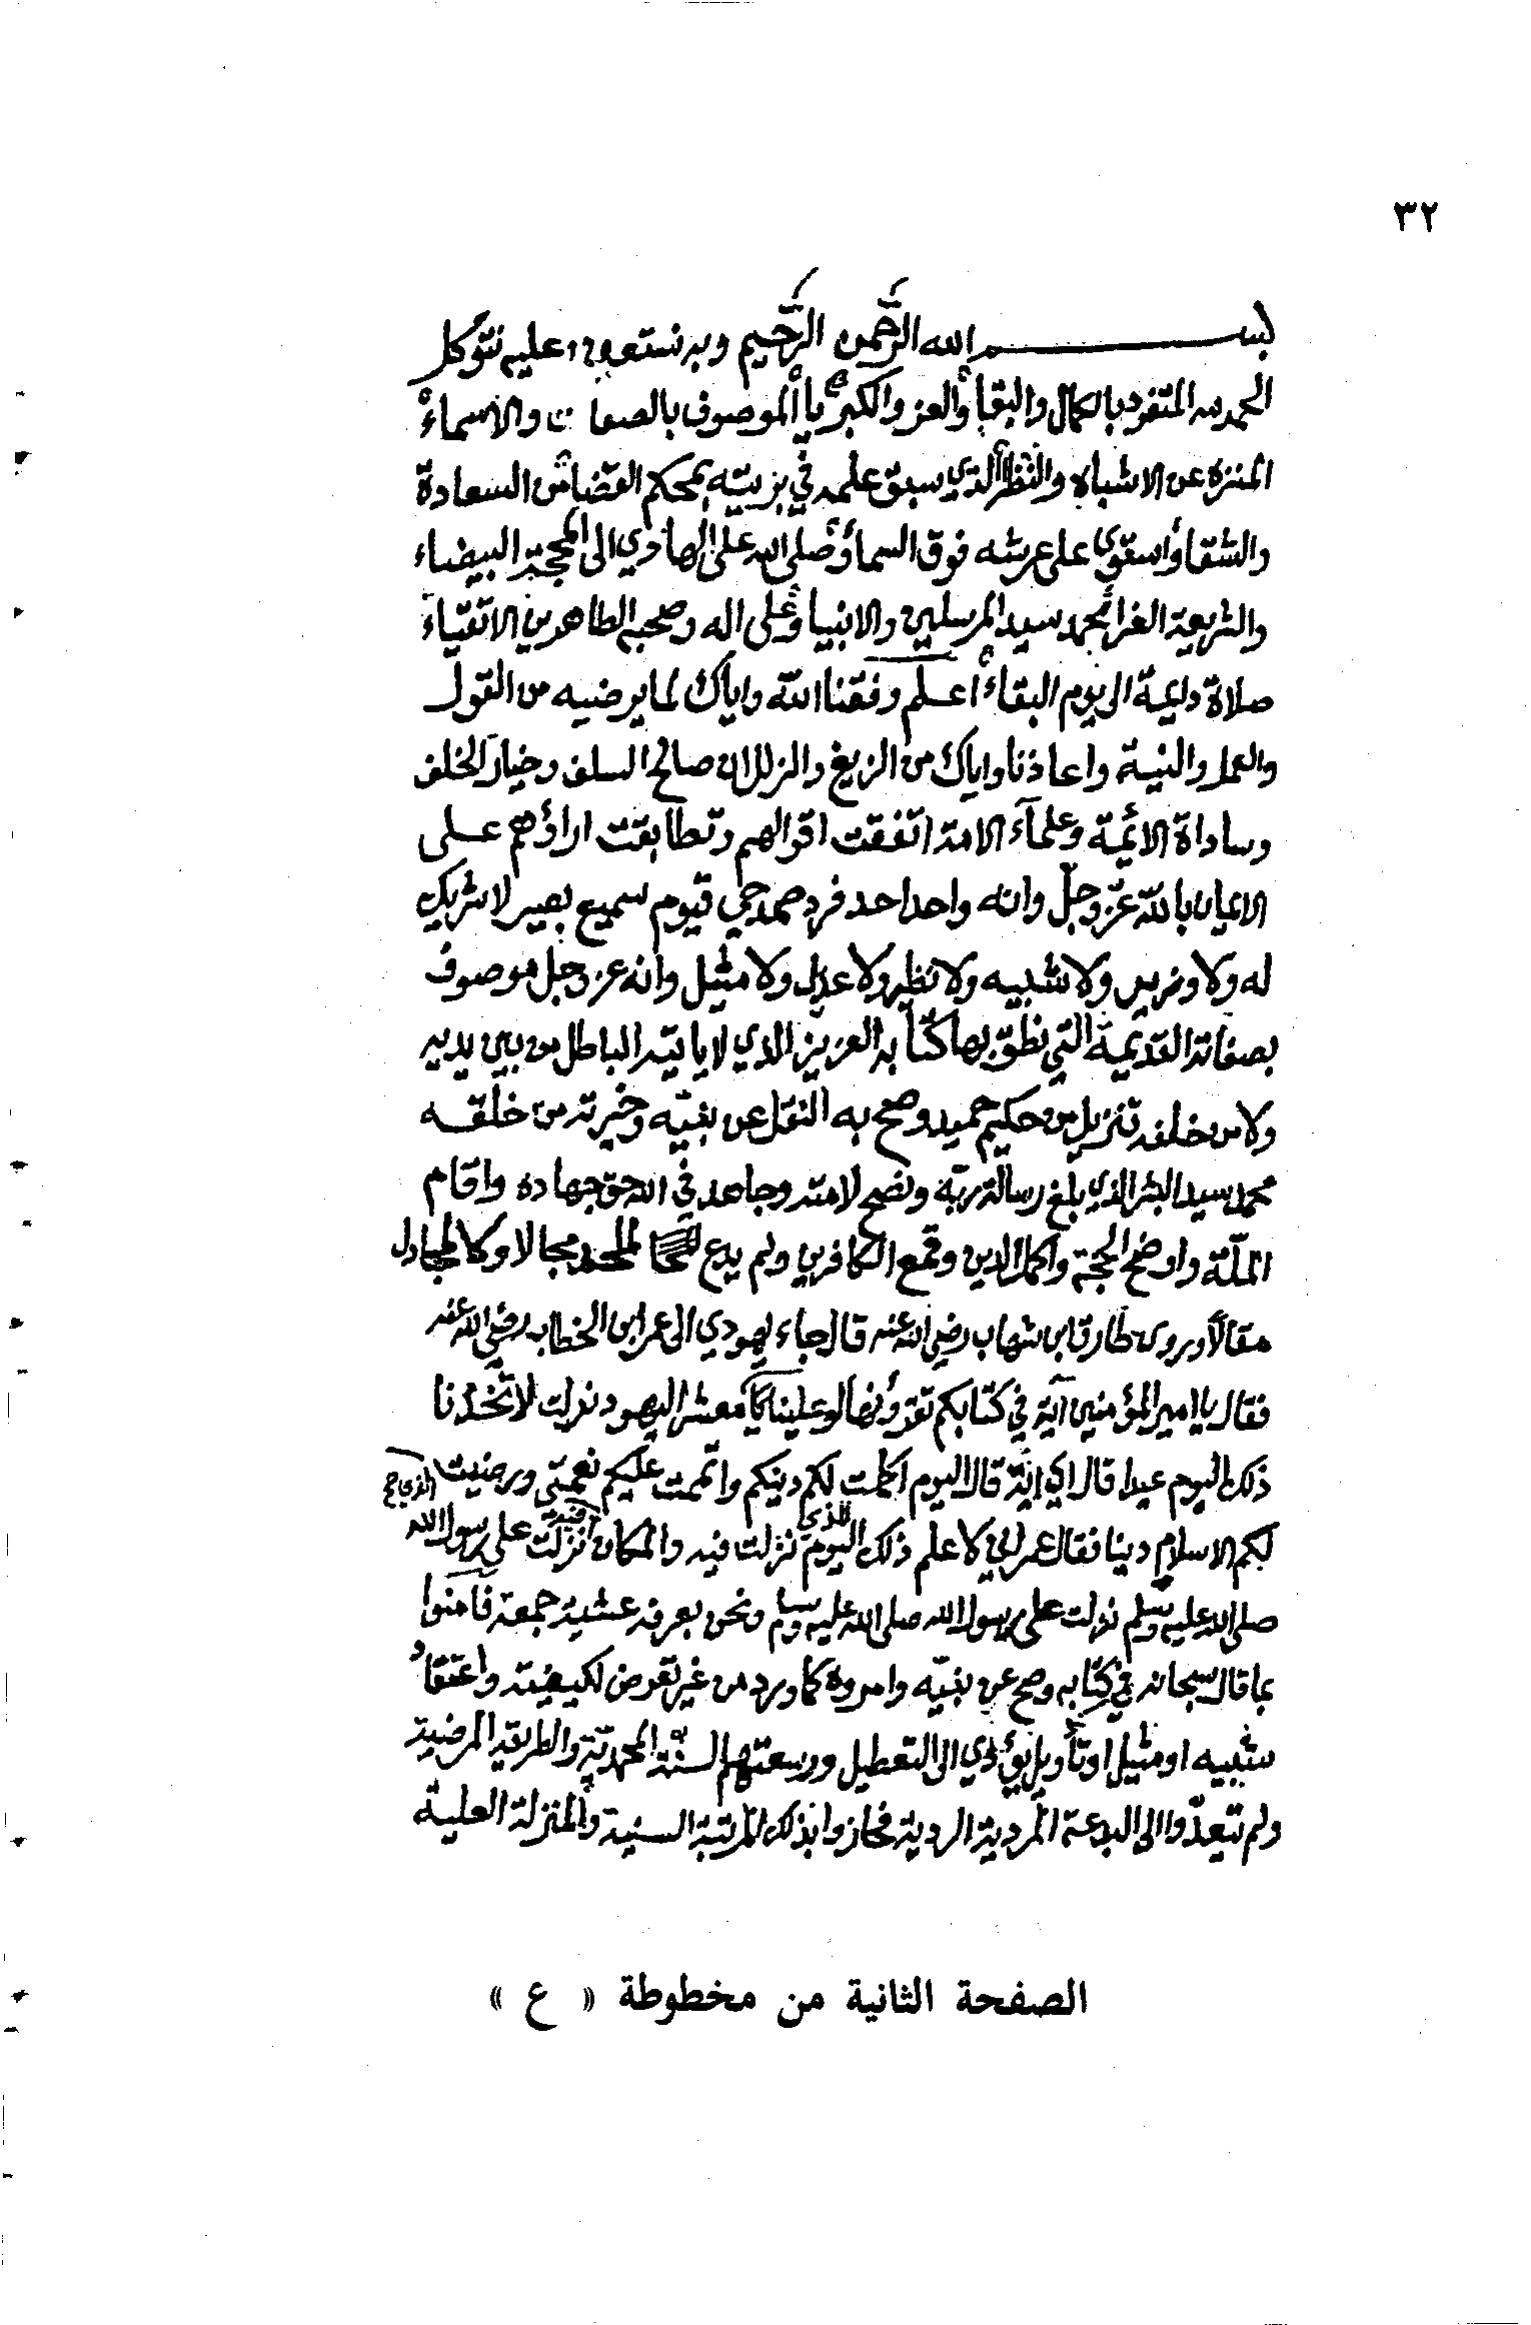 ٣٢
بسم الله الرحمن الرحيم وبه نستعين وعليه نتوكل
الحمد لله المتفرد بالكمال والبقاء والعز والكبرياء الموصوف بالصفات والاسماء
المنزه عن الاشباه والنظراء الذي سبق علمه في بريته بمحكم القضاء من السعادة
والشقاء واستوى على عرشه فوق السماء وصلى الله على الهادي الى المحجة البيضاء
والشريعة الغراء محمد سيد المرسلين والانبياء وعلى اله وصحبه الطاهرين الاتقياء
صلاة دايمة الى يوم البقاء اعلم وفقنا الله واياك لما يرضيه من القول
والعمل والنية واعاذنا واياك من الزيغ والزلل ان صالح السلف وخيار الخلف
وساداة الائمة وعلمآء الامة اتفقت اقوالهم وتطابقت اراؤهم على
الايمان بالله عز وجل وانه واحد احد فرد صمد حي قيوم سميع بصير لا شريك
له ولا وزير ولا شبيه ولا نظير ولا عديل ولا مثيل وانه عز وجل موصوف
بصفاته القديمة التي نطق بها كتابه العزيز الذي لا ياتيه الباطل من بين يديه
ولا من خلفه تنزيل من حكيم حميد وصح به النقل عن نبيه وخيرته من خلقه
محمد سيد البشر الذي بلغ رسالة ربه ونصح لامته وجاهد في الله حق جهاده واقام
الملة واوضح المحجة واكمل الدين وقمع الكافرين ولم يدع لملحد مجالا ولا لمجادل
مقالا وروى طارق ابن شهاب رضي الله عنه قال جاء يهودي الى عمر ابن الخطاب رضي الله عنه
فقال يا امير المؤمنين آية في كتابكم تقرؤنها لو علينا معشر اليهود نزلت لاتخذنا
ذلك اليوم عيدا قال اي اية قال اليوم اكملت لكم دينكم واتممت عليكم نعمتي ورضيت
لكم الاسلام دينا فقال عمر اني لاعلم ذلك اليوم الذي نزلت فيه والمكان الذي نزلت فيه على رسول الله
صلى الله عليه وسلم نزلت على رسول الله صلى الله عليه وسلم ونحن بعرفة عشية جمعة فامنوا
بما قال سبحانه في كتابه وصح عن نبيه وامروه كما ورد من غير تعرض لكيفيته واعتقاد
شبيه او مثيل او تأويل يؤدي الى التعطيل ووسعتهم السنة المحمدية والطريقة المرضية
ولم تيعدوا الى البدعة المردية الردية فحازوا بذلك المرتبة السنية والمنزلة العلية
الصفحة الثانية من مخطوطة « ع »